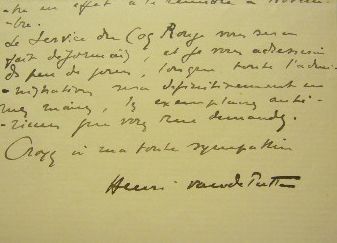 -tre en effet à remettre à Novem-
-bre.
Le service du Coq Rouge vous sera
fait désormais, et je vous adresserai
d'ici peu de jours, lorsque toute l'admi-
-nistration sera définitivement en
mes mains, les exemplaires anté-
-rieurs que vous me demandez.
Croyez à ma toute sympathie
Henri vande Putte